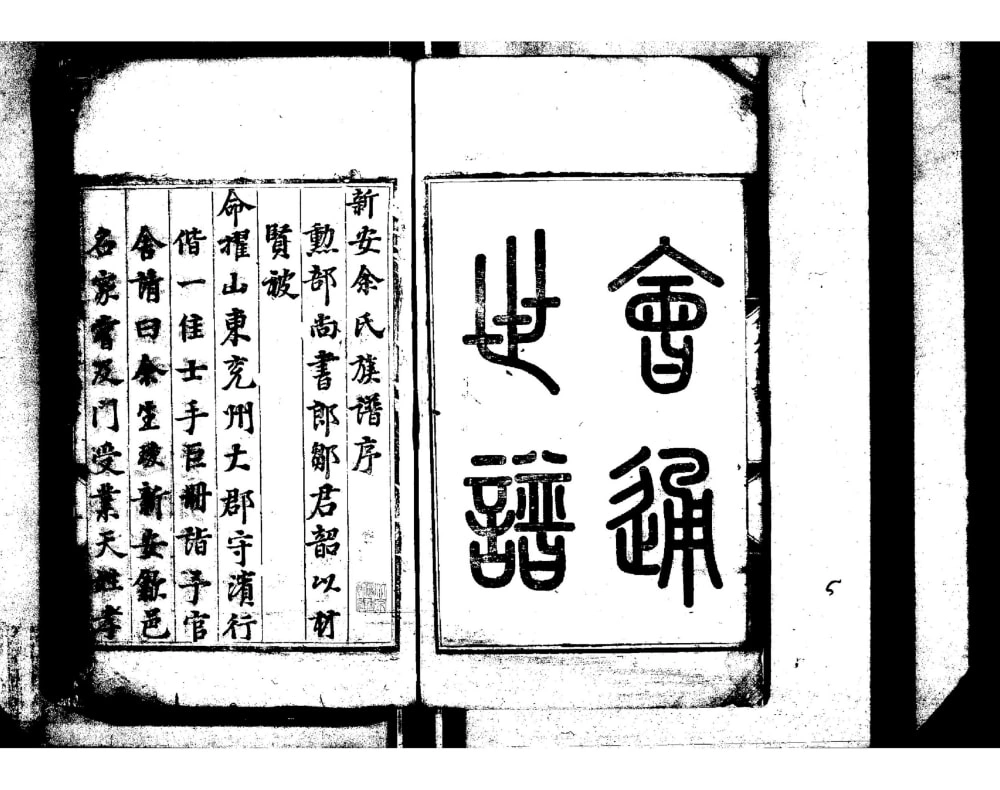 會通
世譜
新安余氏族譜序
勳部尚書郎鄒君韶以材
賢被
命擢山東兖州大郡守濱行
偕一佳士手巨冊詣予官
舍請曰余生瑗新安歙邑
名家嘗及門受業天性孝
5